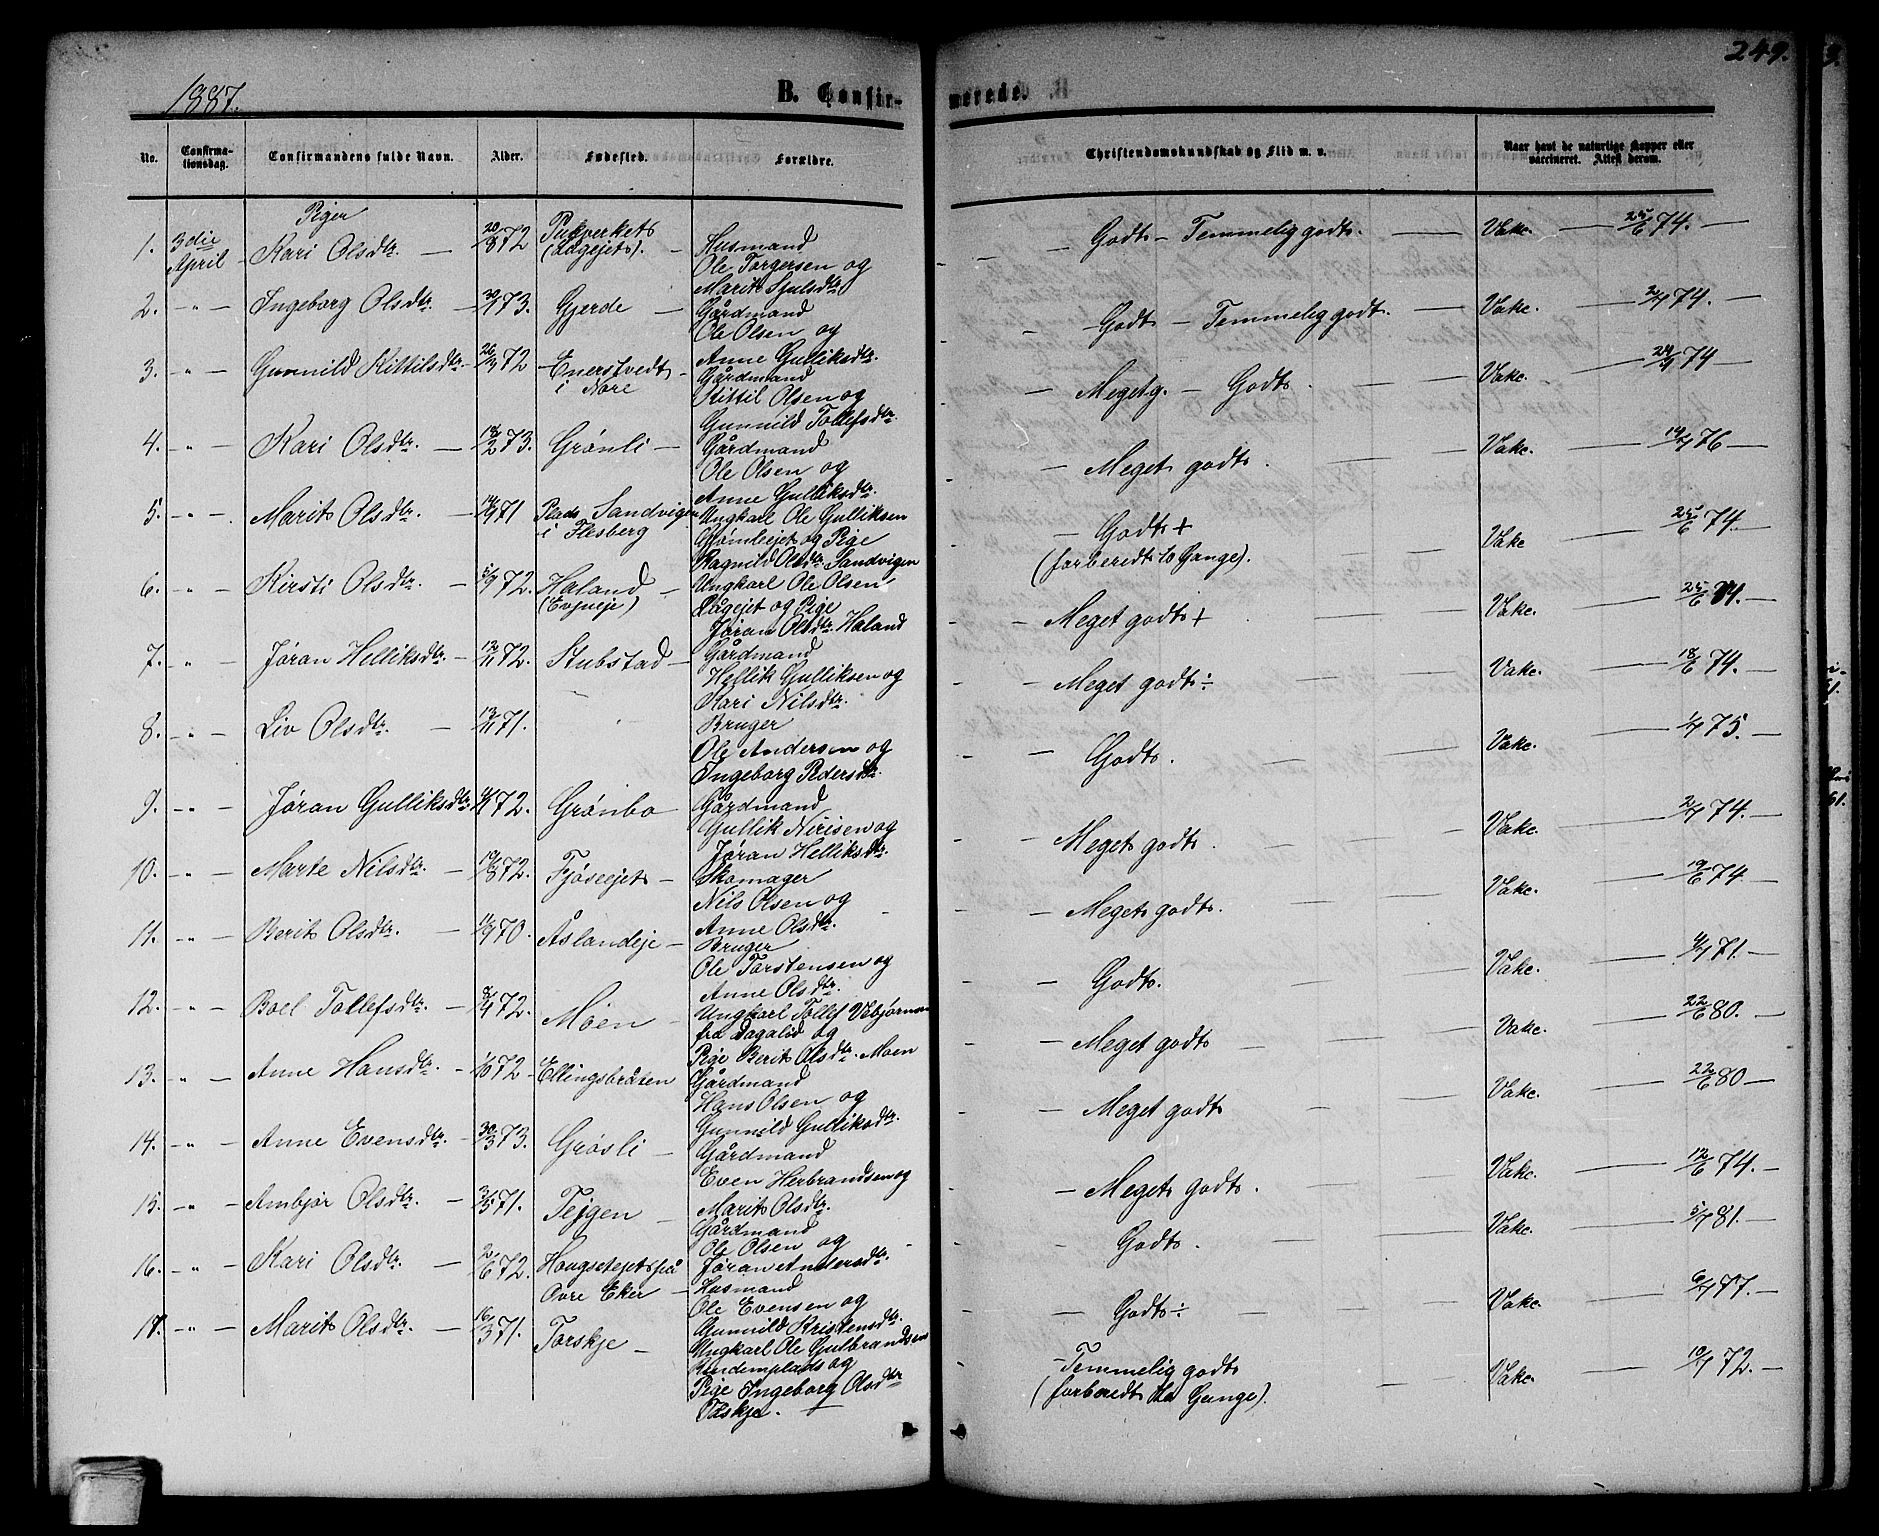 249.
1887.
B. Confirmerede.
No.
Confirmationsdag.
Confirmandens fulde Navn.
Alder.
Fødested.
Forældre.
Christendomskundskab og Flid m. v.
Naar havt de naturlige Kopper eller vaccineret. Attest derom.
Piger
1. 3die April Kari Olsdtr. 20/8 72 Pukverket (Lågejet). Husmand Ole Torgersen og Marit Sjulsdtr. Godt - Temmelig godt. Vakc. 25/6 74.
2. " Ingeborg Olsdtr. 30/1 73. Gjerde Gårdmand Ole Olsen og Anne Gulliksdtr. Godt - Temmelig godt. Vakc. 2/7 74.
3. " Gunnild Kittilsdtr. 26/3 72 Enerstvedt i Nore Gårdmand Kittil Olsen og Gunnild Tollefsdtr. Meget g. - Godt. Vakc. 24/9 74
4. " Kari Olsdtr. 18/2 73. Grønli Gårdmand Ole Olsen og Anne Gulliksdtr. Meget godt. Vakc. 14/7 76
5. " Marit Olsdtr. 14/9 71 Plads Sandvigen i Flesberg Ungkarl Ole Gulliksen og Pige Ragnild Olsdtr. Sandvigen Godt + (forberedt to Gange). Vakc 25/6 74.
6. " Kirsti Olsdtr. 5/9 72. Haland (Evjueje) Ungkarl Ole Olsen Lågejet og Pige Jøran Olsdtr. Haland Meget godt + Vakc. 25/6 74.
7. " Jøran Helliksdtr. 12/11 72. Stubstad Gårdmand Hellik Gulliksen og Kari Nilsdtr. Meget godt ÷ Vakc. 18/6 74.
8. " Liv Olsdtr. 13/11 71. " Bruger Ole Andersen og Ingeborg Pedersdtr. Godt. Vakc. 1/7 75.
9. " Jøran Gulliksdtr. 72. Grønbo Gårdmand Gullik Nirisen og Jøran Helliksdtr. Meget godt. Vakc. 2/7 74.
10. " Marte Nilsdtr. 19/8 72. Fjøseejet Skomager Nils Olsen og Anne Olsdtr. Meget godt. Vakc. 19/6 74
11. " Berit Olsdtr. 11/9 70. Åslandeje Bruger Ole Torstensen og Anne Olsdtr. Godt. Vakc. 4/7 71.
12. " Boel Tollefsdtr. 8/9 72. Moen Ungkarl Tollef Vebjørnsen fra Dagalid og Pige Berit Olsdtr. Moen Meget godt Vakc. 22/6 80.
13. " Anne Hansdtr. 1/10 72 Ellingsbråten Gårdmand Hans Olsen og Gunnild Gulliksdtr. Meget godt Vakc. 22/6 80
14. " Anne Evensdtr. 30/3 73. Grøsli Gårdmand Even Herbrandsen og Marit Olsdtr. Meget godt. Vakc. 12/6 74.
15. " Ambjør Olsdtr. 3/5 71. Tejgen Gårdmand Ole Olsen og Jøran Andersdtr. Godt. Vakc. 5/7 81.
16. " Kari Olsdtr. 2/6 72. Hougsetejet på Øvre Eker Husmand Ole Evensen og Gunnild Kristensdtr. Godt ÷ Vakc. 6/7 77.
17. " Marit Olsdtr. 16/3 71. Torskje Ungkarl Ole Gulbrandsen og Pige Ingeborg Olsdtr Toskje. Temmelig godt (forberedt tre Gange). Vakc. 10/7 72.